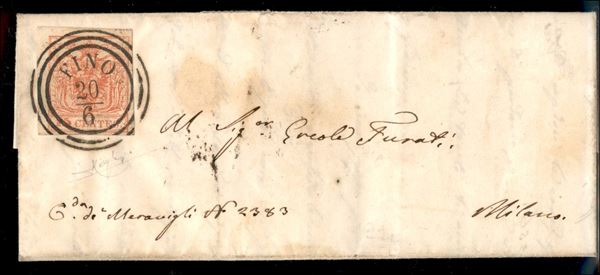 FINO
20
6
CENTES
Al Sig.or Ercole Turati.
C.da de' Meravigli N° 2383
Milano.